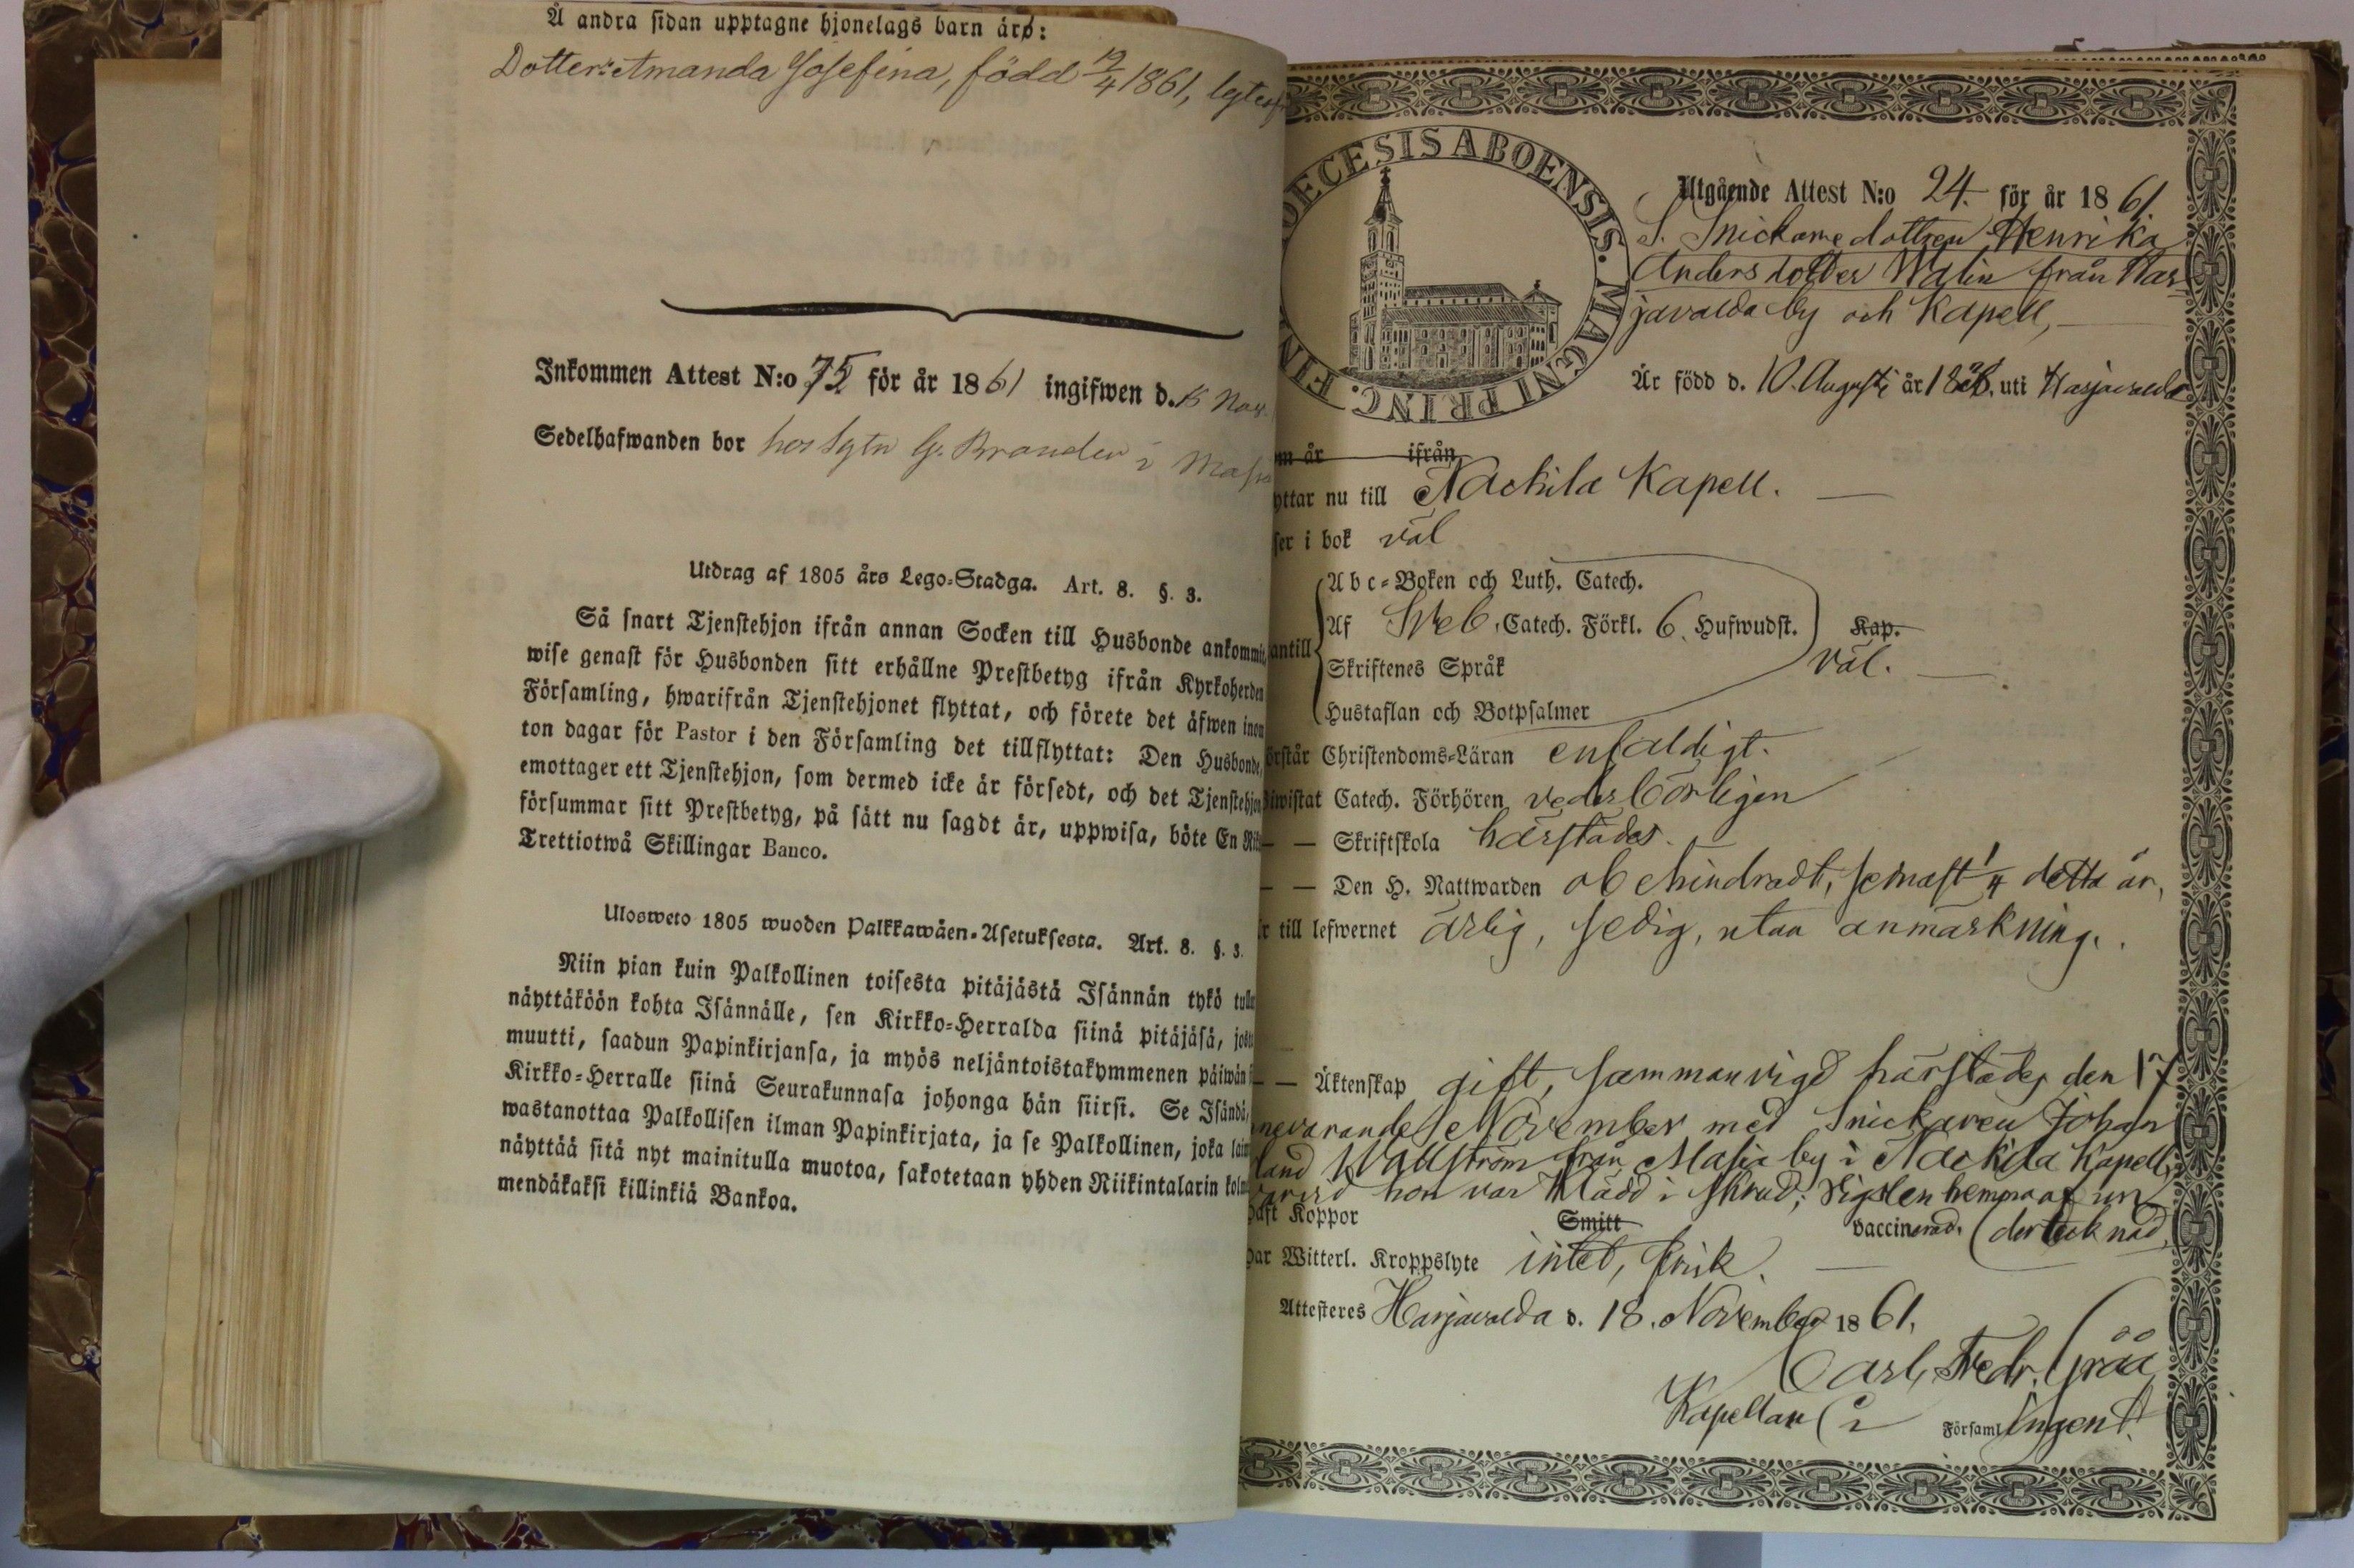 Å andra sidan upptagne hjonelags barn äro:
Dotter: Amanda Josefina, född 12/4 1861,
Inkommen Attest N:o 75 för år 1861 ingifwen d. 15 Nov.
Sedelhafwanden bor hos Sgtn G. Brander i
Utdrag af 1805 års Lego-Stadga. Art. 8. §. 3.
Så snart Tjenstehjon ifrån annan Socken till Husbonde ankommit,
wise genast för Husbonden sitt erhållne Prestbetyg ifrån Kyrkoherden
Församling, hwarifrån Tjenstehjonet flyttat, och förete det äfwen inom
ton dagar för Pastor i den Församling det tillflyttat: Den Husbonde,
emottager ett Tjenstehjon, som dermed icke är försedt, och det Tjenstehjon
försummar sitt Prestbetyg, på sätt nu sagdt är, uppwisa, böte En Rik
Trettiotwå Skillingar Banco.
Ulosweto 1805 wuoden Palkkawäen-Asetuksesta. Art. 8. §. 3.
Niin pian kuin Palkollinen toisesta pitäjästä Isännän tykö tullu
näyttäköön kohta Isännälle, sen Kirkko-Herralda siinä pitäjäsä, josta
muutti, saadun Papinkirjansa, ja myös neljäntoistakymmenen päiwän
Kirkko-Herralle siinä Seurakunnasa johonga hän siirsi. Se Isändä,
wastanottaa Palkollisen ilman Papinkirjata, ja se Palkollinen, joka laim
näyttää sitä nyt mainitulla muotoa, sakotetaan yhden Riikintalarin kolm
mendäkaksi killinkiä Bankoa.
DIOECESIS ABOENSIS. MAGNI PRINC. FIN
Utgående Attest N:o 24. för år 1861
S. Snickaredottren Henrika
Andersdotter Walin från Har-
javalda by och Kapell,
Är född d. 10. Augusti år 18 uti Harjavalda
m år ifrån
yttar nu till Nackila Kapell.
ser i bok väl
Abc-Boken och Luth. Catech.
antill Af Sveb. Catech. Förkl. 6. Hufwudst. Kap.
Skriftenes Språk väl.
Hustaflan och Botpsalmer
örstår Christendoms-Läran enfaldigt.
iwistat Catech. Förhören vederbörligen
— — Skriftskola härstädes.
— — Den H. Nattwarden obehindradt, senast 1/4 detta år,
r till lefwernet ärlig, sedig, utan anmärkning.
— — Äktenskap gift, sammanvigd härstädes den 17
nevarande November med Snickaren Johan
land Wallström från Masia by i Nackila Kapell,
varvid hon var klädd i skrud; vigslen hemma af un
haft Koppor Smitt vaccinerad. (dertecknad,
har Witterl. Kroppslyte intet, frisk.
Attesteres Harjavalda d. 18. November 1861.
Carl Fredr. Gråå
Kapellan i Församlingen